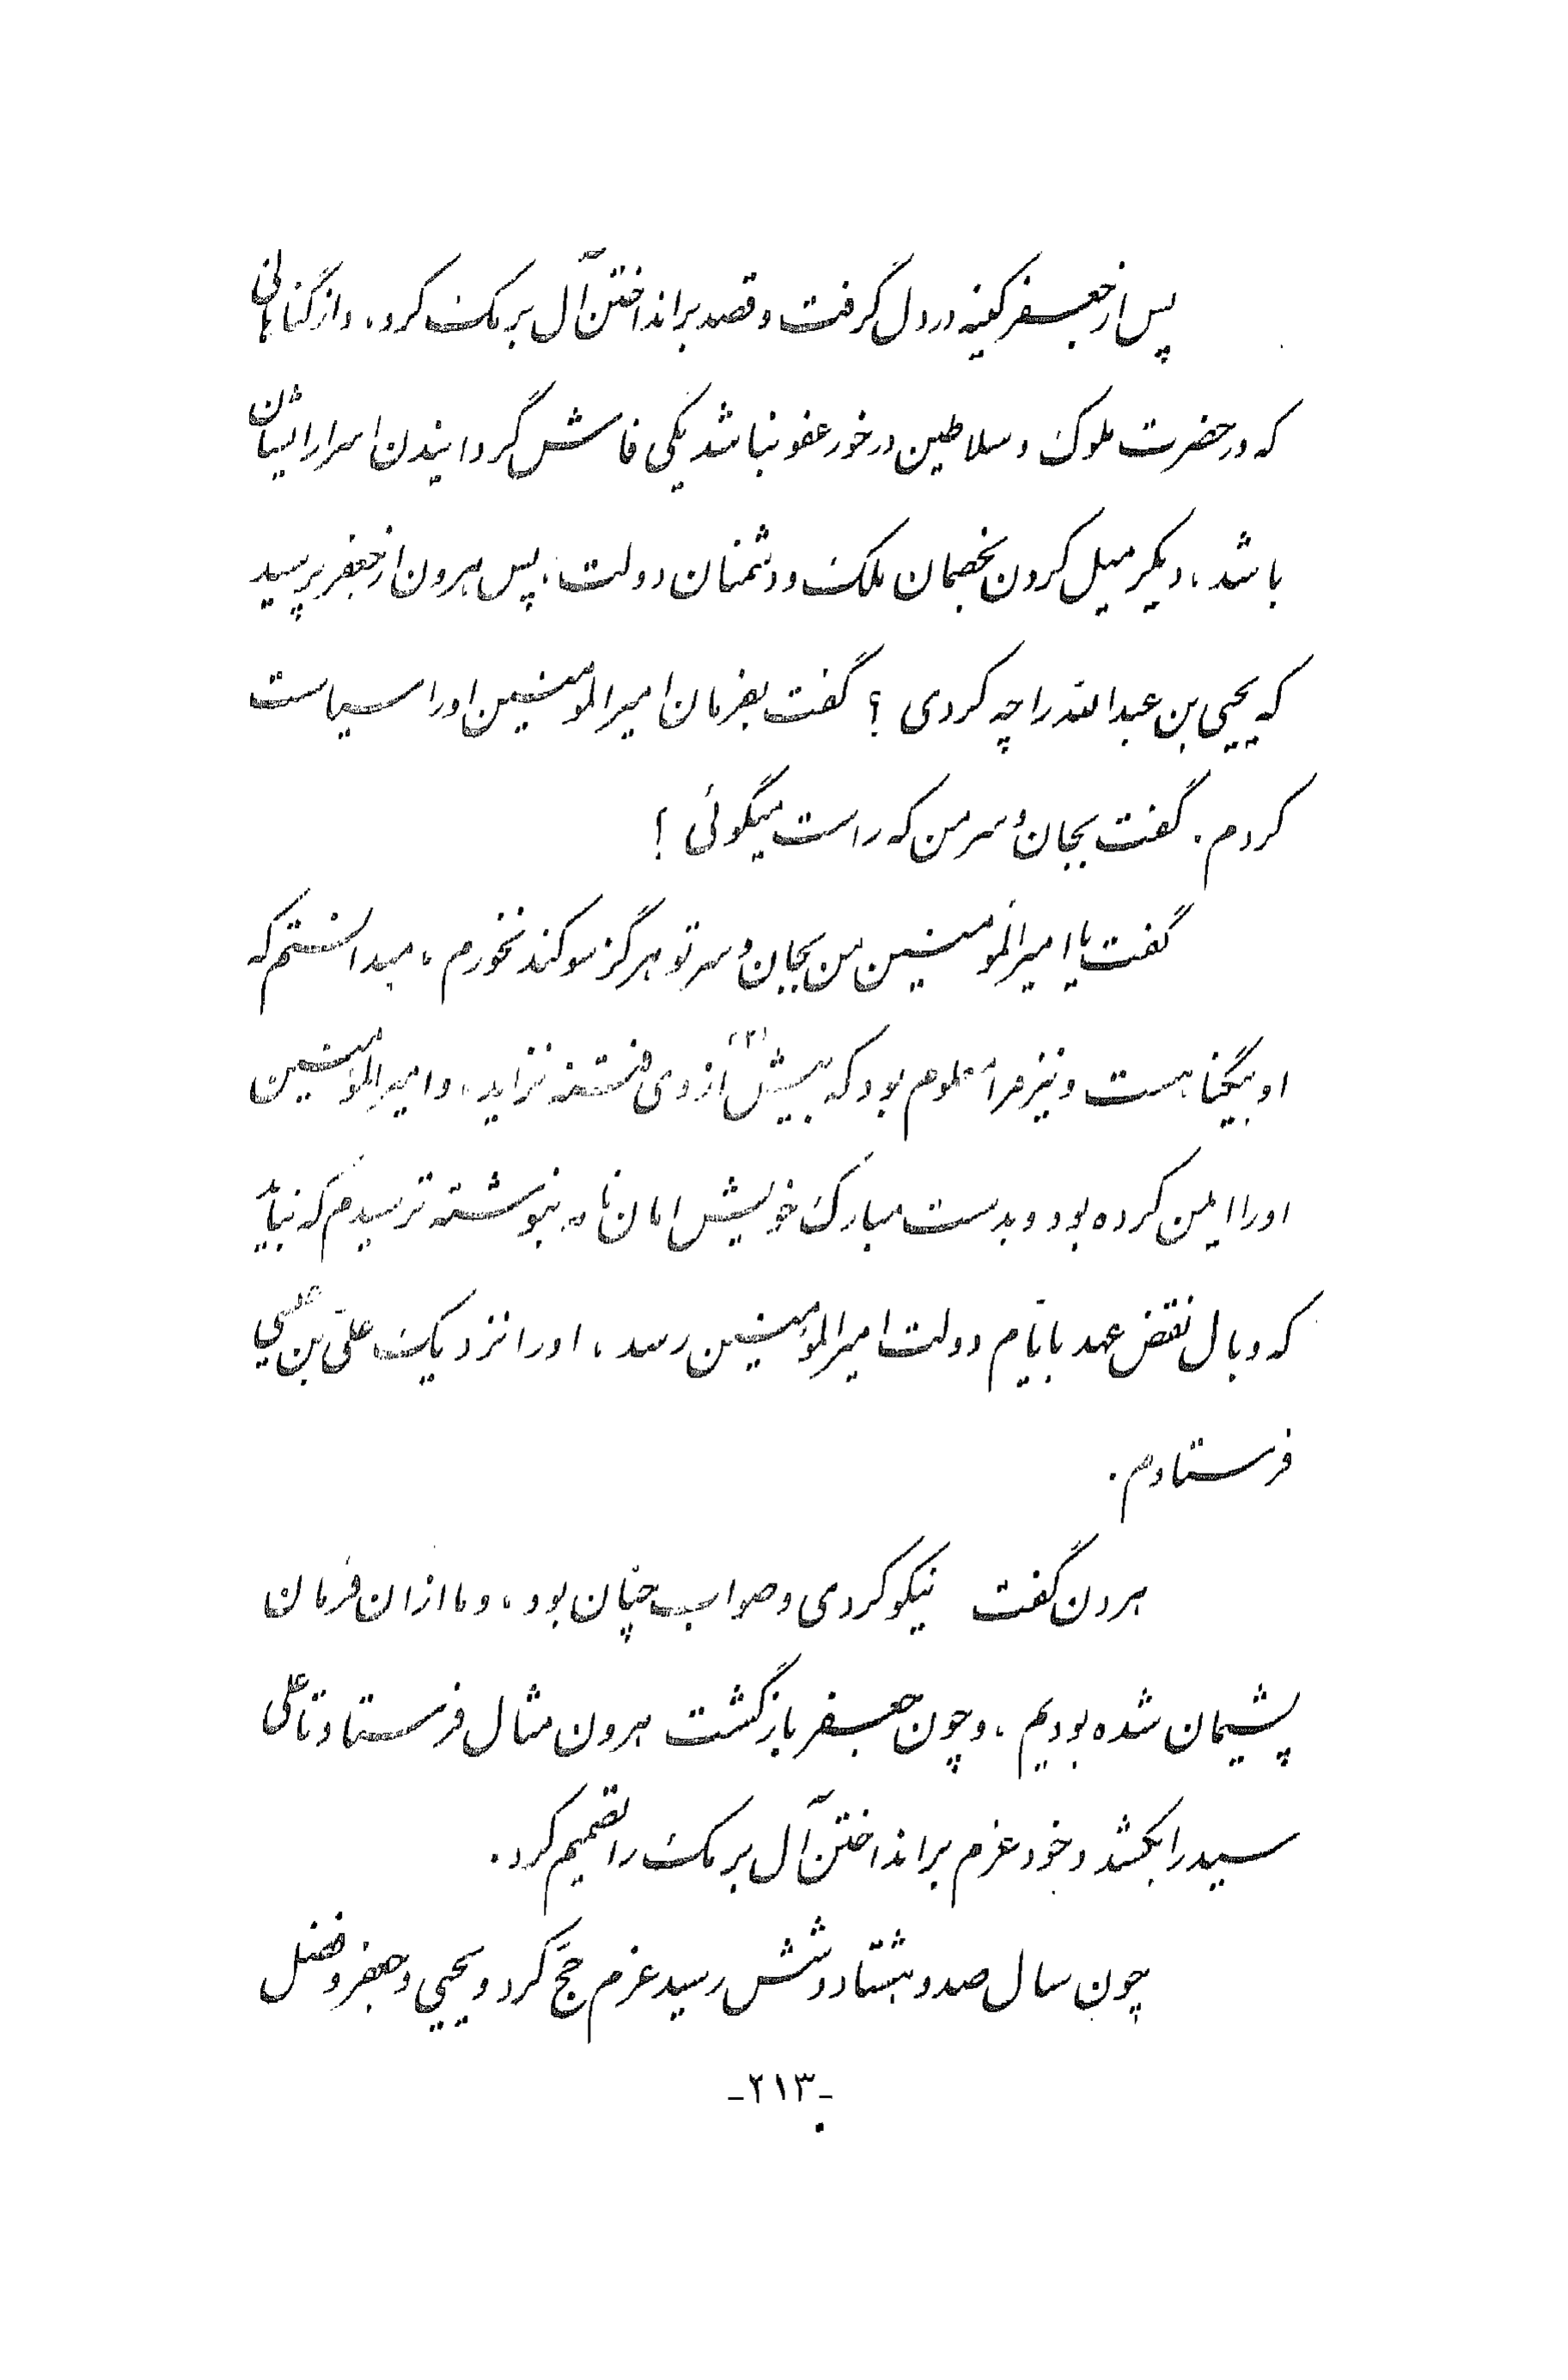 پس از جعفر کینه در دل گرفت و قصد برانداختن آل برمک کرد، و از گناهانی
که در حضرت ملوک و سلاطین در خور عفو نباشد یکی فاش گردانیدن اسرار ایشان
باشد، دیگر میل کردن بخصمان ملک و دشمنان دولت، پس هرون از جعفر پرسید
که یحیی بن عبدالله را چه کردی ؟ گفت بفرمان امیرالمومنین او را سیاست
کردم . گفت بجان و سر من که راست میگوئی !
گفت یا امیرالمومنین من بجان و سر تو هرگز سوکند نخورم ، میدانستم که
او بیگناهست و نیز مرا معلوم بود که بیش (۲) از وی فتنه نزاید، و امیرالمؤمنین
او را ایمن کرده بود و بدست مبارک خویش امان نامه بنوشته ترسیدم که نباید
که وبال نقض عهد بایّام دولت امیرالمؤمنین رسد ، او را نزدیک علیّ بن عیسی
فرستادم .
هرون گفت نیکو کردی و صواب چنان بود ، و ما از آن فرمان
پشیمان شده بودیم ، و چون جعفر بازگشت هرون مثال فرستاد تا علی
سید را بکشد و خود عزم برانداختن آل برمک را تصمیم کرد .
چون سال صد و هشتاد و شش رسید عزم حجّ کرد و یحیی و جعفر و فضل
-۲۱۳-